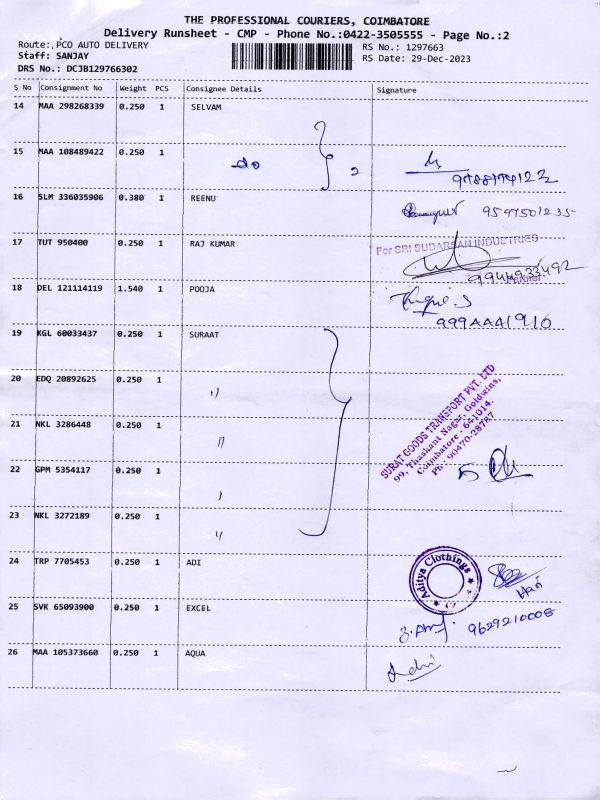 THE PROFESSIONAL COURIERS, COIMBATORE
Delivery Runsheet - CMP - Phone No.:0422-3505555 - Page No.:2
Route:,PCO AUTO DELIVERY
RS No.: 1297663
Staff: SANJAY
RS Date: 29-Dec-2023
DRS No.: DCJB129766302
S No Consignment No Weight PCS Consignee Details Signature
14 MAA 298268339 0.250 1 SELVAM
15 MAA 108489422 0.250 1 do 2
16 SLM 336035906 0.380 1 REENU 9597501235
17 TUT 950400 0.250 1 RAJ KUMAR For SRI SUDARSAN INDUSTRIES
9944933492
18 DEL 121114119 1.540 1 POOJA
999AAA1910
19 KGL 60033437 0.250 1 SURAAT
20 EDQ 20892625 0.250 1 "
21 NKL 3286448 0.250 1 "
22 GPM 5354117 0.250 1
23 NKL 3272189 0.250 1 "
SURAT GOODS TRANSPORT PVT. LTD
99, Thaskant Nagar, Goldwins,
Coimbatore - 641014.
Ph : 90470-28787
5
24 TRP 7705453 0.250 1 ADI Aditya Clothings
Hari
25 SVK 65093900 0.250 1 EXCEL 9629210008
26 MAA 105373660 0.250 1 AQUA